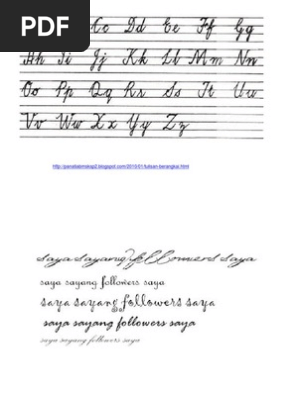 PDF
Cc Dd Ee Ff Gg
Hh Ii Jj Kk Ll Mm Nn
Oo Pp Qq Rr Ss Tt Uu
Vv Ww Xx Yy Zz
saya sayang followers saya
saya sayang followers saya
saya sayang followers saya
saya sayang followers saya
saya sayang followers saya